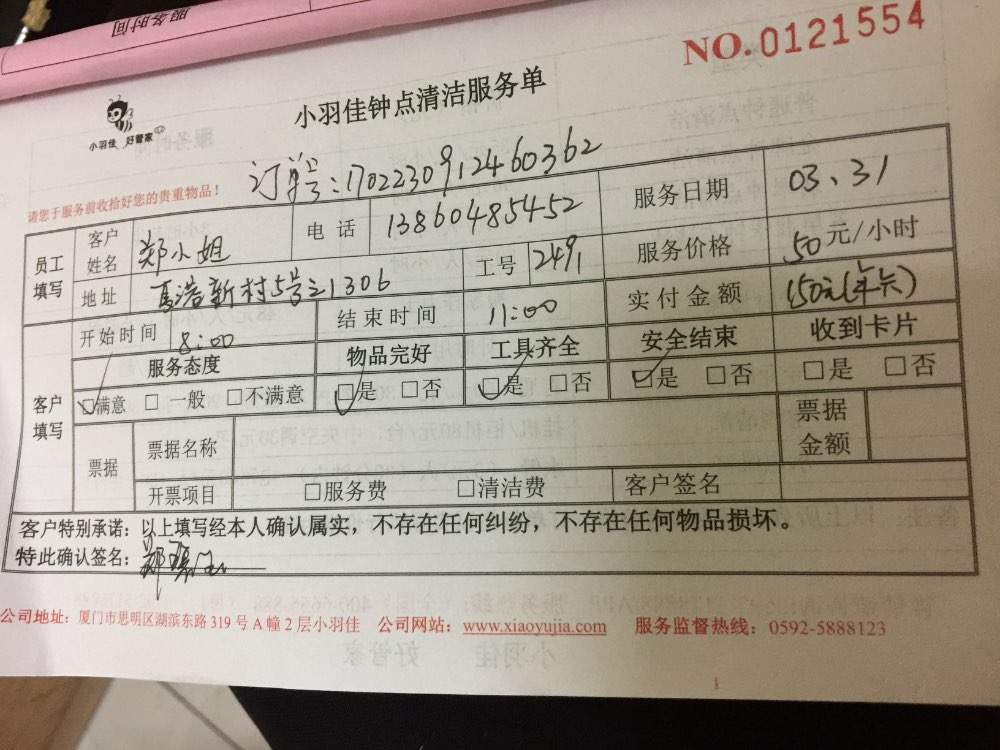 服务时间
NO.0121554
小羽佳 好管家
小羽佳钟点清洁服务单
订单号:1702230912460362
请您于服务前收拾好您的贵重物品!
员工填写 客户姓名 郑小姐 电话 13860485452 服务日期 03、31
地址 新村5号之1306 工号 2491 服务价格 50元/小时
开始时间 8:00 结束时间 11:00 实付金额 150元(年卡)
客户填写 服务态度 物品完好 工具齐全 安全结束 收到卡片
☑满意 □一般 □不满意 ☑是 □否 ☑是 □否 ☑是 □否 □是 □否
票据 票据名称 票据金额
开票项目 □服务费 □清洁费 客户签名
客户特别承诺:以上填写经本人确认属实,不存在任何纠纷,不存在任何物品损坏。
特此确认签名:郑
公司地址:厦门市思明区湖滨东路 319 号 A 幢 2 层小羽佳 公司网站:www.xiaoyujia.com 服务监督热线:0592-5888123